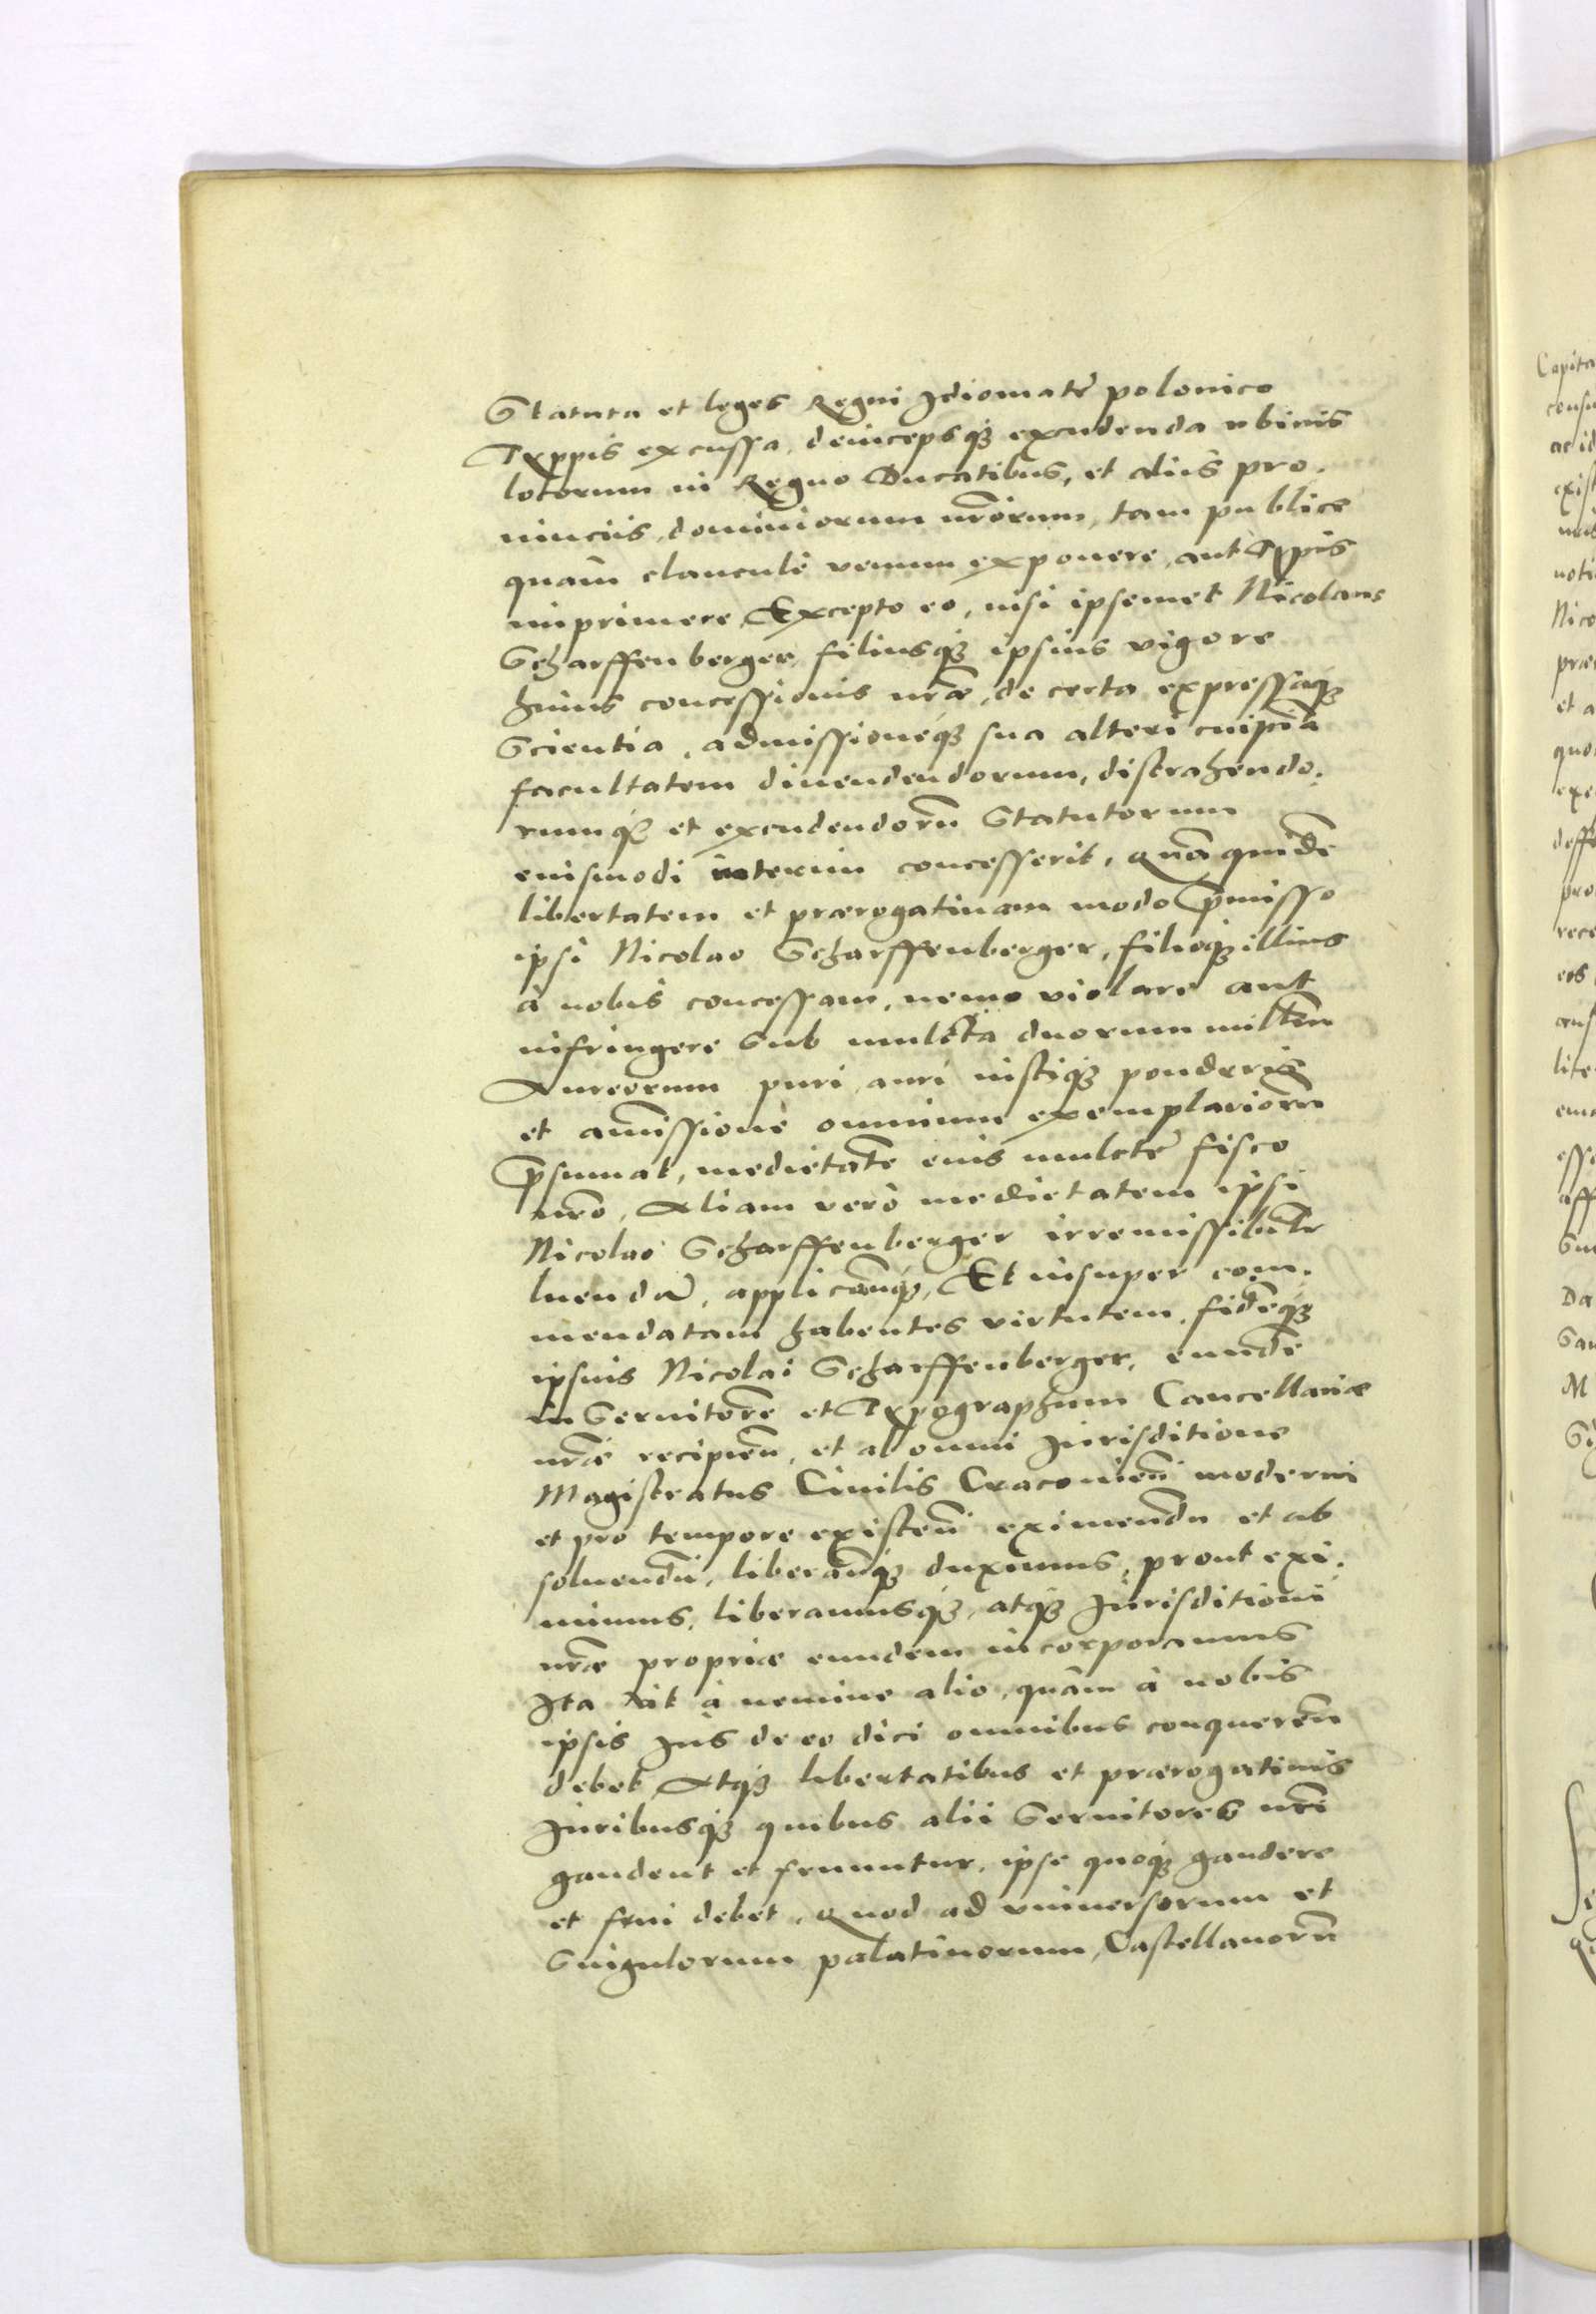 Statuta et leges Regni Idiomate polonico
Typpis excussa, deincepsq₃ excudenda ubiuis
locorum in Regno Ducatibus, et aliis pro.
uinciis, dominiorum nr̃orum, tam publice
quàm clanculè venum exponere, aut Typis
imprimere, Excepto eo, nisi ipsemet Nicolaus
Scharffenberger, filiusq₃ ipsius vigore
huius concessionis nr̃æ, de certa expressaq₃
Scientia, admissioneq₃ sua alteri cuipiã
facultatem diuendendorum, distrahendo.
rumq₃ et excudendorũ Statutorum
eiusmodi interim concesserit, Quã quidẽ
libertatem et prærogatiuam modo p̃misso
ipsi Nicolao Scharffenberger, filioq₃ illius
à nobis concessam, nemo violare aut
infringere Sub mulcta duorum milliũ
Aureorum puri auri iustiq₃ ponderis
et amissione omnium exemplariorũ
p̃sumat, medietatẽ eius mulctæ fisco
nr̃o, Aliam verò medietatem ipsi
Nicolao Scharffenberger irremissibilr̃
luendã, applicandãq₃, Et insuper com.
mendatam habentes virtutem, fidẽq₃
ipsius Nicolai Scharffenberger, eundẽ
in Seruitorẽ et Typographum Cancellariæ
nr̃æ recipien̄, et ab omni Jurisditione
Magistratus Ciuilis Cracouien̄ moderni
et pro tempore existen̄ eximendũ et ab
soluendũ, liberandũq₃ duximus, prout exi.
mimus, liberamusq₃, atq₃ Jurisditioni
nr̃æ propriæ eundem incorporamus
Ita vt à nemine alio, quàm à nobis
ipsis Jus de eo dici omnibus conqueren̄
debet, Atq₃ libertatibus et prærogatiuis
Juribusq₃ quibus alii Seruitores nr̃i
gaudent et fruuntur, ipse quoq₃ gaudere
et frui debet, Quod ad vniuersorum et
Singulorum palatinorum, Castellanorũ